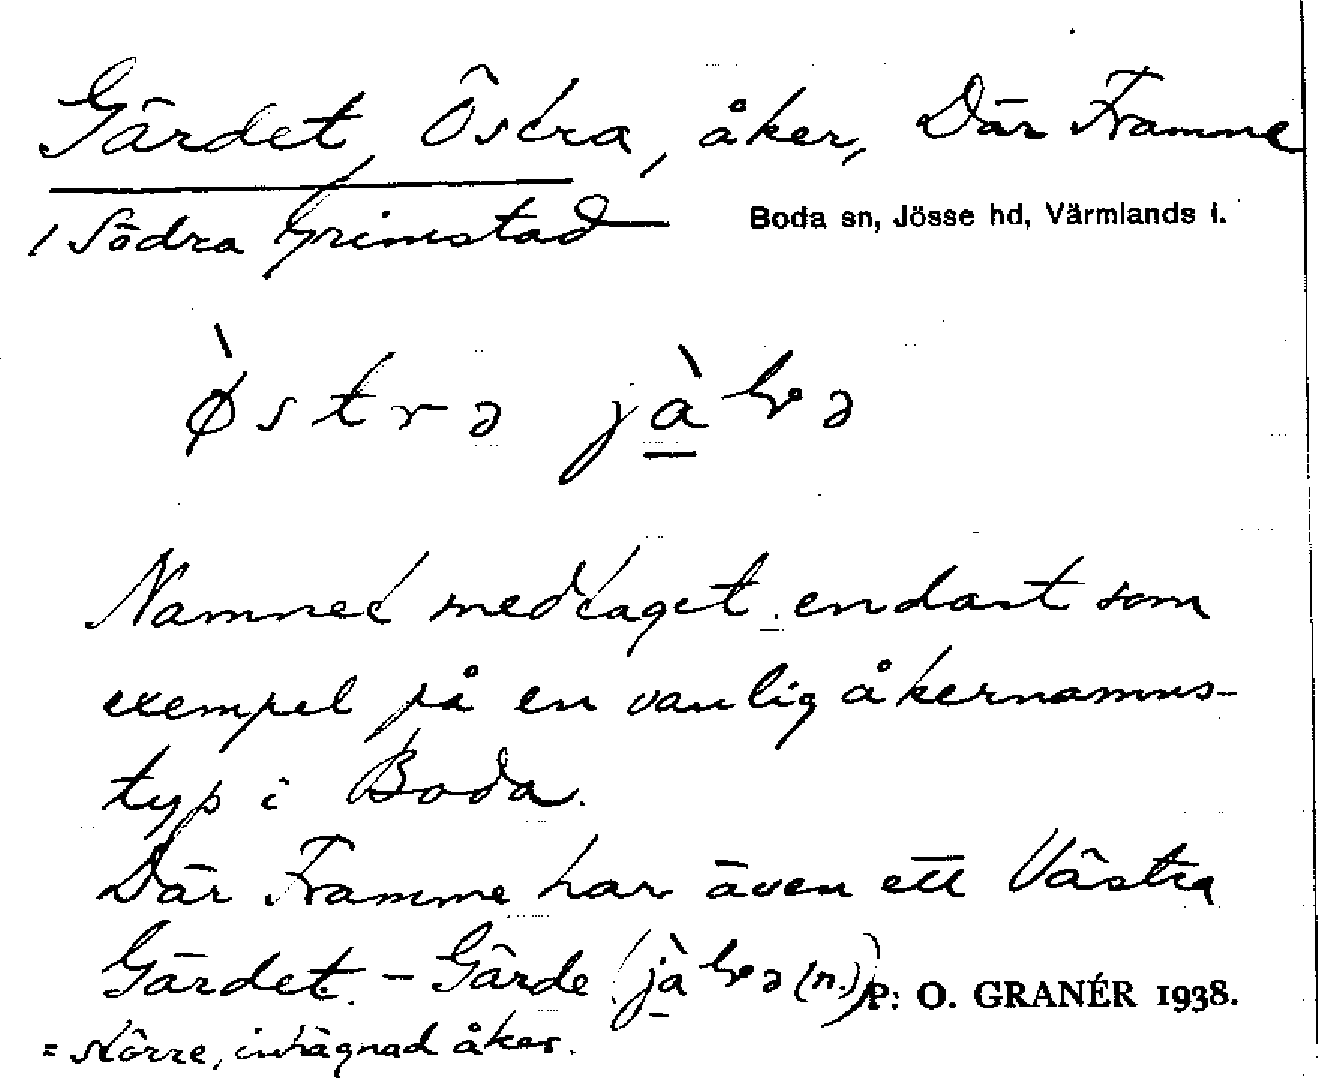 Gärdet, Östra, åker, Där Framme
i Södra Grimstad
Boda sn, Jösse hd, Värmlands l.
Namnet medtaget endast som
exempel på en vanlig åkernamns-
typ i Boda.
Där Framme har även ett Västra
Gärdet. - Gärde (n.)
P: O. GRANÉR 1938.
= större, inhägnad åker.